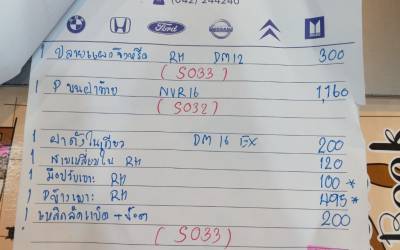 (042) 244240
Ford
NISSAN
1 ปลายแผงจิ้งหรีด RH DM12 300
(SO33)
1 P ขนฝาท้าย NVR16 1,160
(SO32)
1 ฝาถังในเกียว DM 16 EX 200
1 สามเหลี่ยมใน RH 120
1 มือปรับเบาะ RH 100 *
1 ข้างเบาะ RH 495 *
1 เหล็กล็อค 200
(SO33)
Book